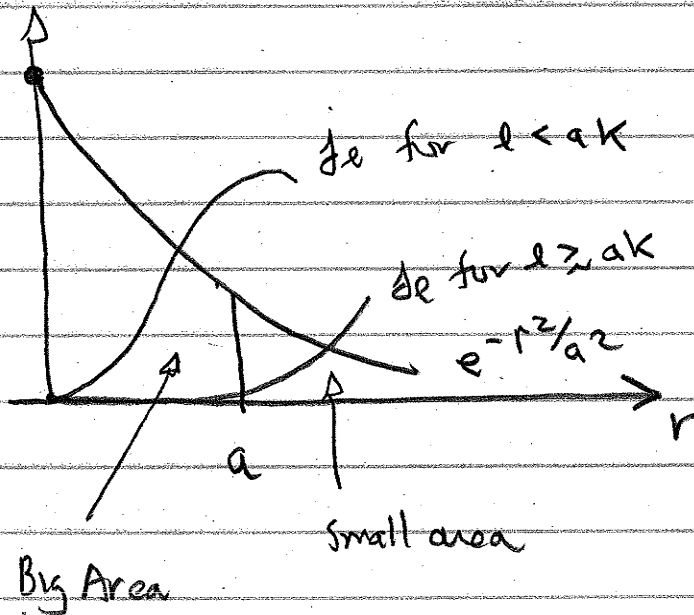 je for l < ak
je for l ≳ ak
e^-r²/a²
r
a
small area
Big Area